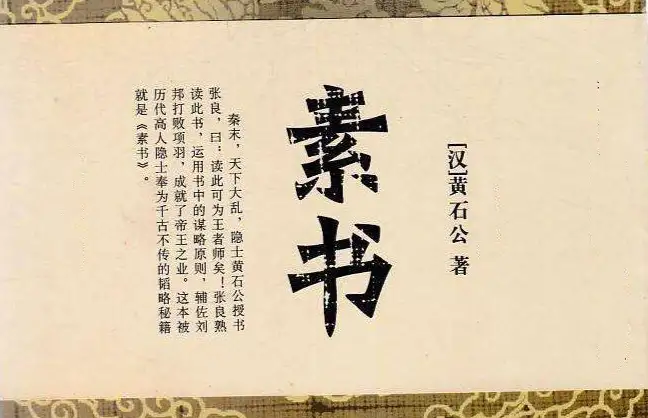 [汉]黄石公 著
素书
秦末，天下大乱，隐士黄石公授书
张良，曰：读此可为王者师矣！张良熟
读此书，运用书中的谋略原则，辅佐刘
邦打败项羽，成就了帝王之业。这本被
历代高人隐士奉为千古不传的韬略秘籍
就是《素书》。